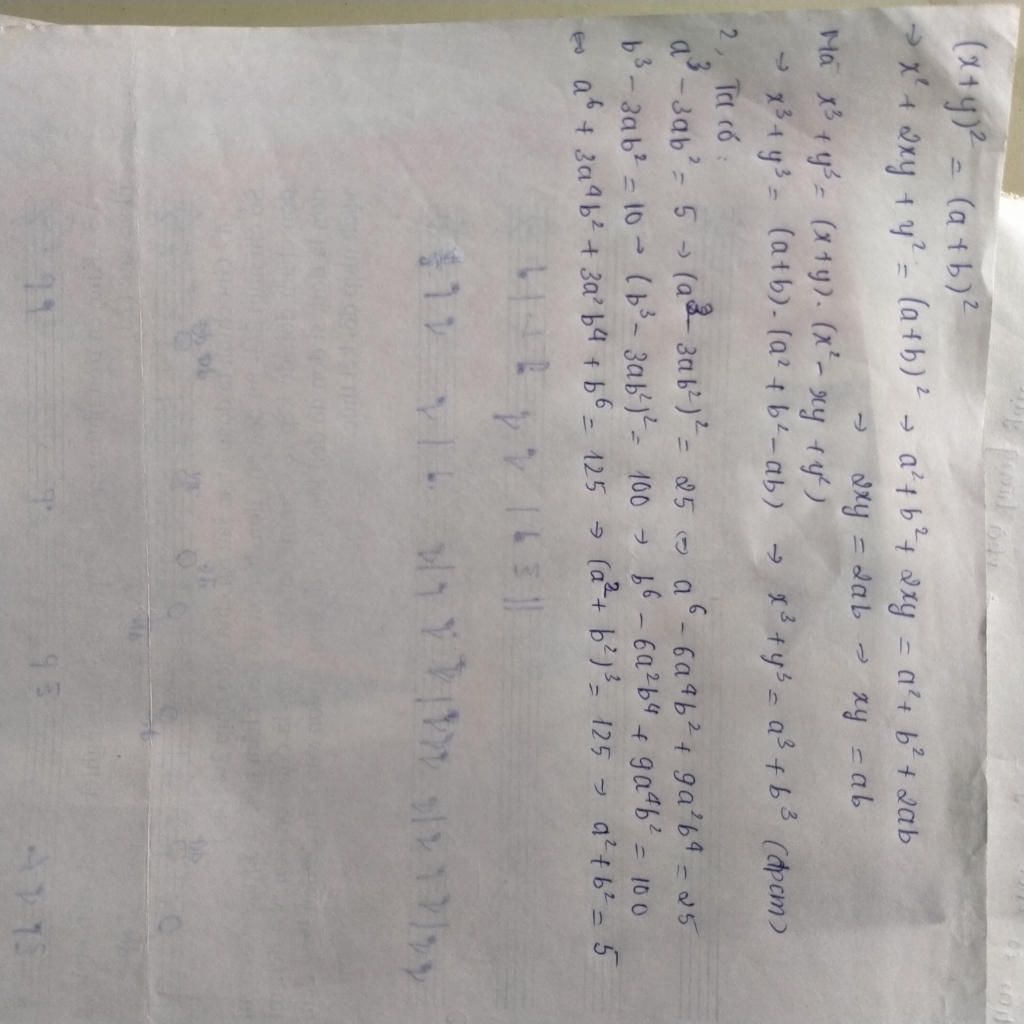 (x+y)² = (a+b)²
→ x² + 2xy + y² = (a+b)² → a² + b² + 2xy = a² + b² + 2ab
→ 2xy = 2ab → xy = ab
Mà x³ + y³ = (x+y).(x² - xy + y²)
→ x³ + y³ = (a+b).(a² + b² - ab) → x³ + y³ = a³ + b³ (đpcm)
2, Ta có:
a³ - 3ab² = 5 → (a³ - 3ab²)² = 25 ⇔ a⁶ - 6a⁴b² + 9a²b⁴ = 25
b³ - 3ab² = 10 → (b³ - 3ab²)² = 100 → b⁶ - 6a²b⁴ + 9a⁴b² = 100
⇔ a⁶ + 3a⁴b² + 3a²b⁴ + b⁶ = 125 → (a² + b²)³ = 125 → a² + b² = 5